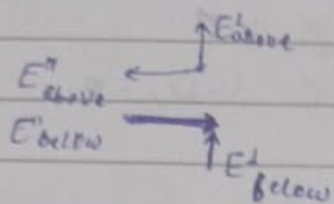 E⊥above
E"above
E'below
E⊥below